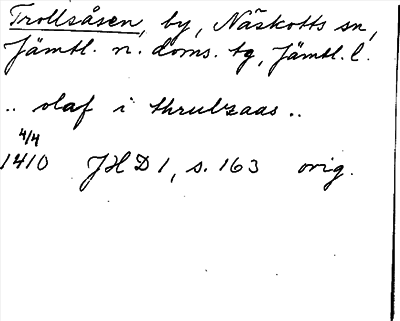 Trollsåsen, by, Näskotts sn,
Jämtl. n. doms. tg, Jämtl. l.
.. olaf i thrulzaas ..
4/4
1410 JHD 1, s. 163 orig.